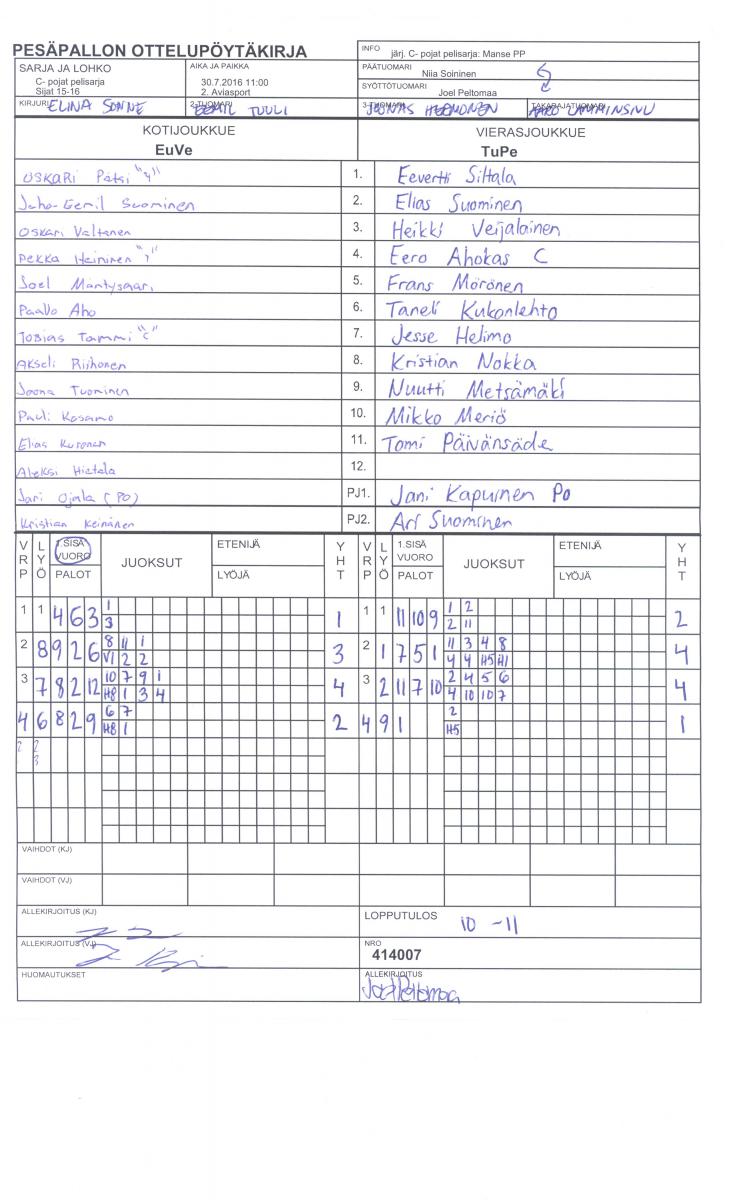 PESÄPALLON OTTELUPÖYTÄKIRJA
INFO järj. C- pojat pelisarja: Manse PP
SARJA JA LOHKO
C- pojat pelisarja
Sijat 15-16
AIKA JA PAIKKA
30.7.2016 11:00
2. Aviasport
PÄÄTUOMARI
Niia Soininen
SYÖTTÖTUOMARI
Joel Peltomaa
KIRJURI ELINA SONNE
2-TUOMARI EEMIL TUULI
3-TUOMARI JOONAS HERMONEN
TAKARAJATUOMARI AARO LAMMINSIVU
KOTIJOUKKUE
EuVe
VIERASJOUKKUE
TuPe
OSKARI Pätsi "4" 1. Eevertti Siltala
Juho-Eemil Suominen 2. Elias Suominen
Oskari Valtanen 3. Heikki Veijalainen
Pekka Heininen 4. Eero Ahokas C
Joel Mäntysaari 5. Frans Mörönen
Paavo Aho 6. Taneli Kukonlehto
Tobias Tammi "C" 7. Jesse Helimo
Akseli Riihonen 8. Kristian Nokka
Joona Tuominen 9. Nuutti Metsämäki
Pauli Kosamo 10. Mikko Meriö
Elias Kuronen 11. Tomi Päivänsäde
Aleksi Hietala 12.
Jari Ojala (PO) PJ1. Jani Kapuinen Po
Kristian Keinänen PJ2. Ari Suominen
VRP LYÖ 1.SISÄ VUORO PALOT JUOKSUT ETENIJÄ LYÖJÄ YHT VRP LYÖ 1.SISÄ VUORO PALOT JUOKSUT ETENIJÄ LYÖJÄ YHT
1 1 4 6 3 1 1 1 1 11 10 9 1 2 2
3 2 11
2 8 9 2 6 8 11 1 3 2 1 7 5 1 11 3 4 8 4
V1 2 2 4 4 H5 H1
3 7 8 2 12 10 7 9 1 4 3 2 11 7 10 2 4 5 6 4
H8 1 3 4 4 10 10 7
4 6 8 2 9 6 7 2 4 9 1 2 1
H8 1 H5
2 2
3
VAIHDOT (KJ)
VAIHDOT (VJ)
ALLEKIRJOITUS (KJ)
LOPPUTULOS 10 -11
ALLEKIRJOITUS (VJ)
NRO
414007
HUOMAUTUKSET
ALLEKIRJOITUS
Joel Peltomaa